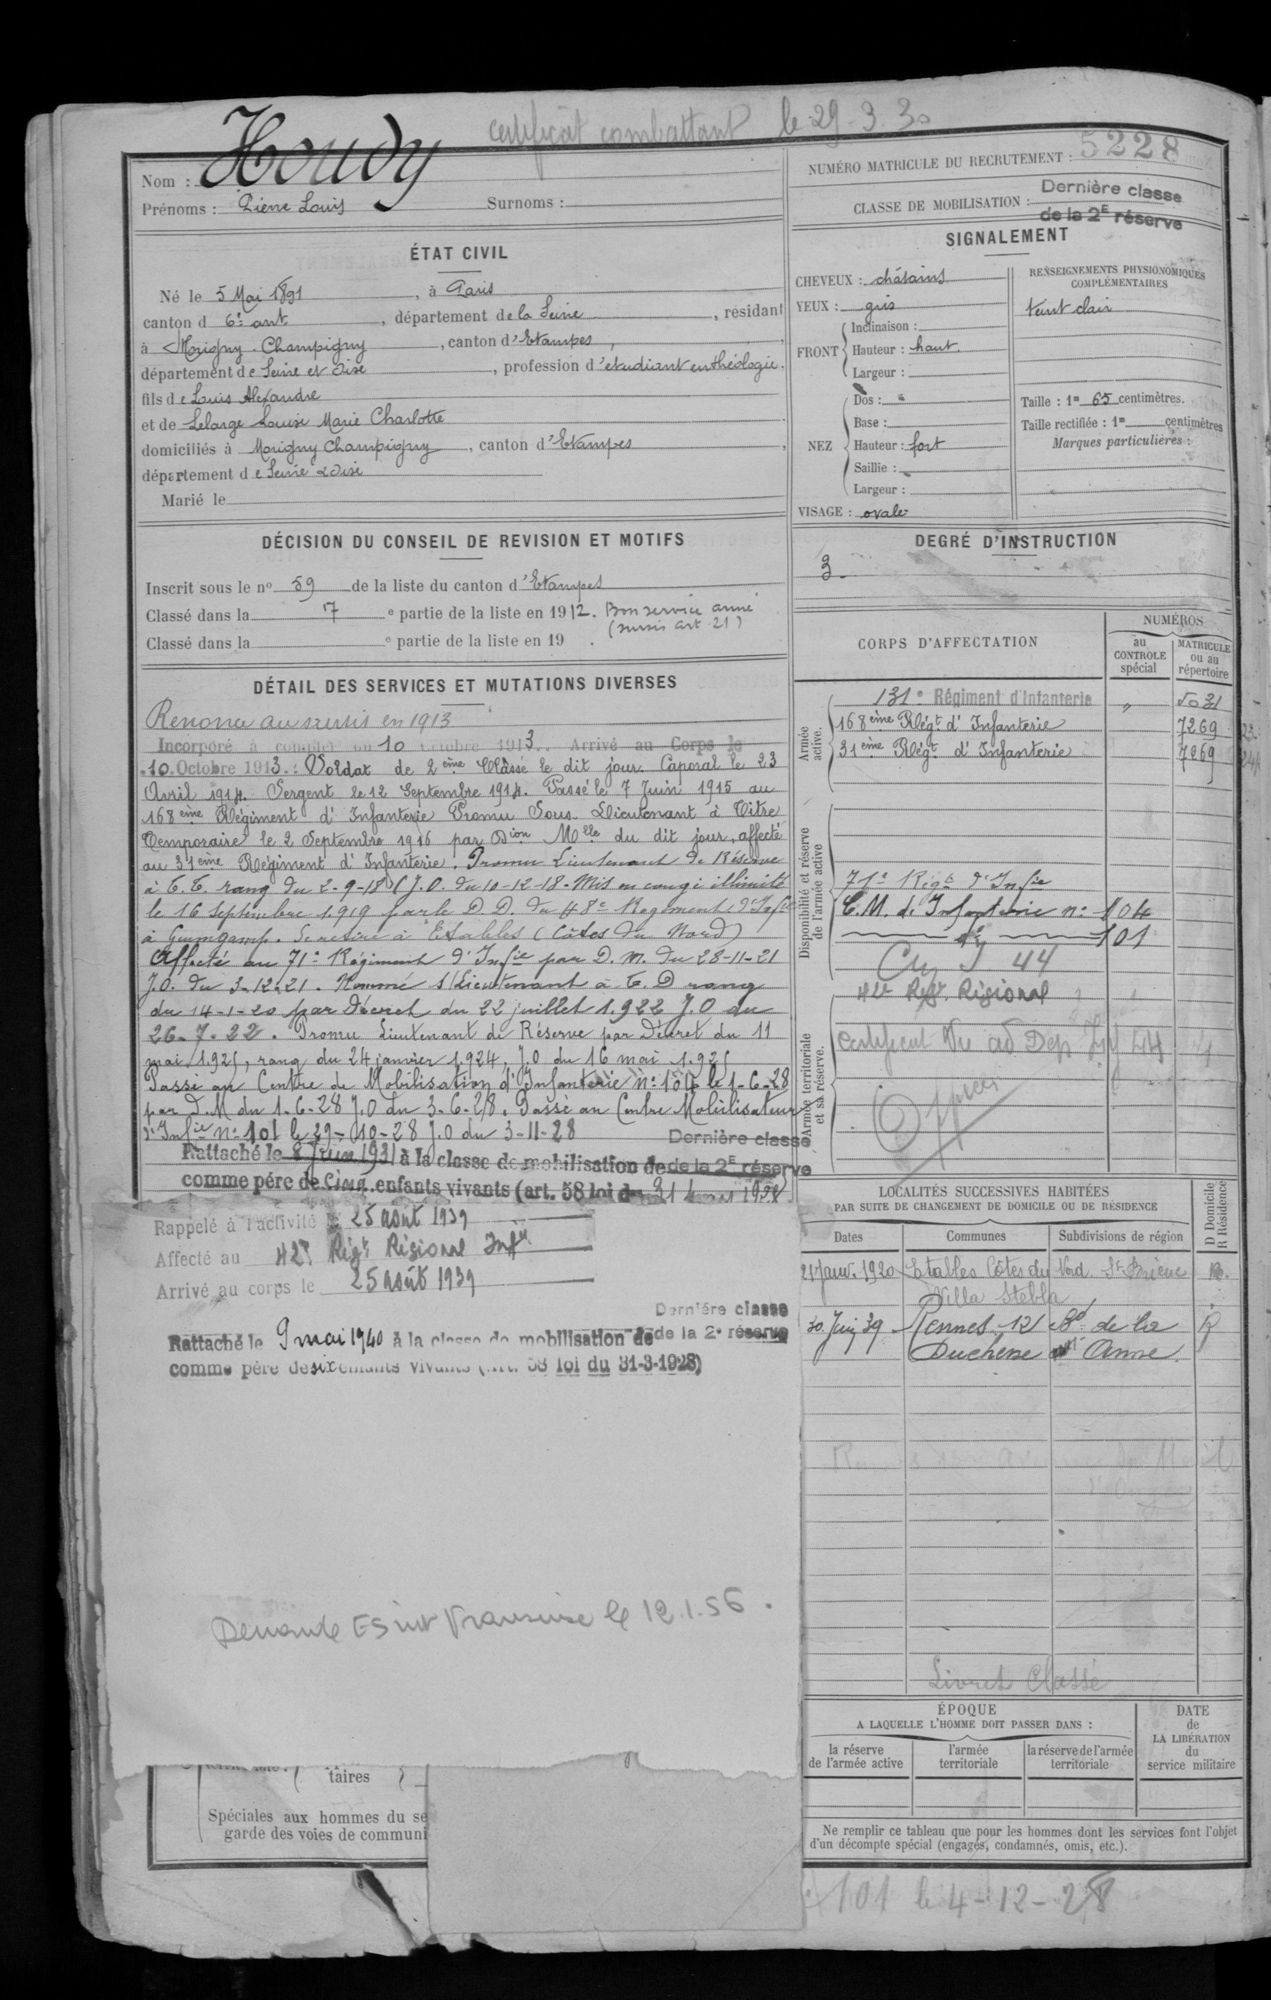 Certificat combattant le 29-3-30
Nom : Houdy
Prénoms : Pierre Louis Surnoms :
ÉTAT CIVIL
Né le 5 Mai 1891, à Paris
canton d 6e arrt, département de la Seine, résidant
à Morigny-Champigny, canton d'Etampes,
département de Seine et Oise, profession d'étudiant en théologie.
fils de Louis Alexandre
et de Lelarge Louise Marie Charlotte
domiciliés à Morigny Champigny, canton d'Etampes,
département de Seine & Oise
Marié le
DÉCISION DU CONSEIL DE REVISION ET MOTIFS
Inscrit sous le no 59 de la liste du canton d'Etampes
Classé dans la 7e partie de la liste en 1912. Bon service armé
(sursis art. 21)
Classé dans la e partie de la liste en 19 .
DÉTAIL DES SERVICES ET MUTATIONS DIVERSES
Renonce au sursis en 1913
Incorporé à compter du 10 octobre 1913. Arrivé au Corps le
10 Octobre 1913. Soldat de 2ème Classe le dit jour. Caporal le 23
Avril 1914. Sergent le 12 Septembre 1914. Passé le 7 Juin 1915 au
168ème Régiment d'Infanterie Promu Sous-Lieutenant à Titre
Temporaire le 2 Septembre 1916 par Dion Mlle du dit jour, affecté
au 31ème Régiment d'Infanterie. Promu Lieutenant de Réserve
à T.T. rang du 2-9-18 (J.O. du 10-12-18. Mis en congé illimité
le 16 Septembre 1919 par le D.D. du 48e Régiment d'Infie
à Guingamp. Se retire à Etables (Côtes du Nord)
Affecté au 71e Régiment d'Infie par D.M. du 28-11-21
J.O. du 3-12-21. Nommé s/Lieutenant à T.D rang
du 14-1-20 par Décret du 22 juillet 1922 J.O du
26-7-22. Promu Lieutenant de Réserve par Décret du 11
mai 1925, rang du 24 janvier 1924, J.O du 16 mai 1925
Passé au Centre de Mobilisation d'Infanterie No 104 le 1-6-28
par D.M du 1-6-28 J.O du 3-6-28. Passé au Centre Mobilisateur
d'Infie No 101 le 29-10-28 J.O du 3-11-28
Rattaché le 8 Juin 1931 à la classe de mobilisation de Dernière classe de la 2E réserve
comme père de Cinq enfants vivants (art. 58 loi du 31 mars 1928
Rappelé à l'activité le 25 août 1939
Affecté au 42e Régt Régional Infie
Arrivé au corps le 25 août 1939
Rattaché le 9 mai 1940 à la classe de mobilisation de Dernière classe de la 2e réserve
comme père de six enfants vivants (art. 58 loi du 31-3-1928)
le 12.1.56.
taires
Spéciales aux hommes du se
garde des voies de communi
NUMÉRO MATRICULE DU RECRUTEMENT : 5228
CLASSE DE MOBILISATION : Dernière classe
de la 2E réserve
SIGNALEMENT
CHEVEUX : châtains
YEUX : gris
FRONT
Inclinaison :
Hauteur : haut.
Largeur :
NEZ
Dos :
Base :
Hauteur : fort
Saillie :
Largeur :
VISAGE : ovale
RENSEIGNEMENTS PHYSIONOMIQUES
COMPLÉMENTAIRES
teint clair
Taille : 1m 65 centimètres.
Taille rectifiée : 1m centimètres
Marques particulières :
DEGRÉ D'INSTRUCTION
3.
CORPS D'AFFECTATION
NUMÉROS
au
CONTROLE
spécial
MATRICULE
ou au
répertoire
Armée
active.
131e Régiment d'Infanterie " 5031
168ème Régt d'Infanterie 7269
31ème Régt d'Infanterie 7269
Disponibilité et réserve
de l'armée active
71e Régt d'Infie
C.M. d'Infanterie no 104
101
44
Armée territoriale
et sa réserve.
42e Régt Régional
Officier
LOCALITÉS SUCCESSIVES HABITÉES
PAR SUITE DE CHANGEMENT DE DOMICILE OU DE RÉSIDENCE
Dates
Communes
Subdivisions de région
D Domicile
R Résidence
21 Janv. 1920 Etables Côtes du Nord St Brieuc R.
Villa Stebla
30 Juin 39 Rennes 12 Bd de la R
Duchesse Anne.
Livret Classé
ÉPOQUE
A LAQUELLE L'HOMME DOIT PASSER DANS :
la réserve
de l'armée active
l'armée
territoriale
la réserve de l'armée
territoriale
DATE
de
LA LIBÉRATION
du
service militaire
Ne remplir ce tableau que pour les hommes dont les services font l'objet
d'un décompte spécial (engagés, condamnés, omis, etc.).
101 le 4-12-28